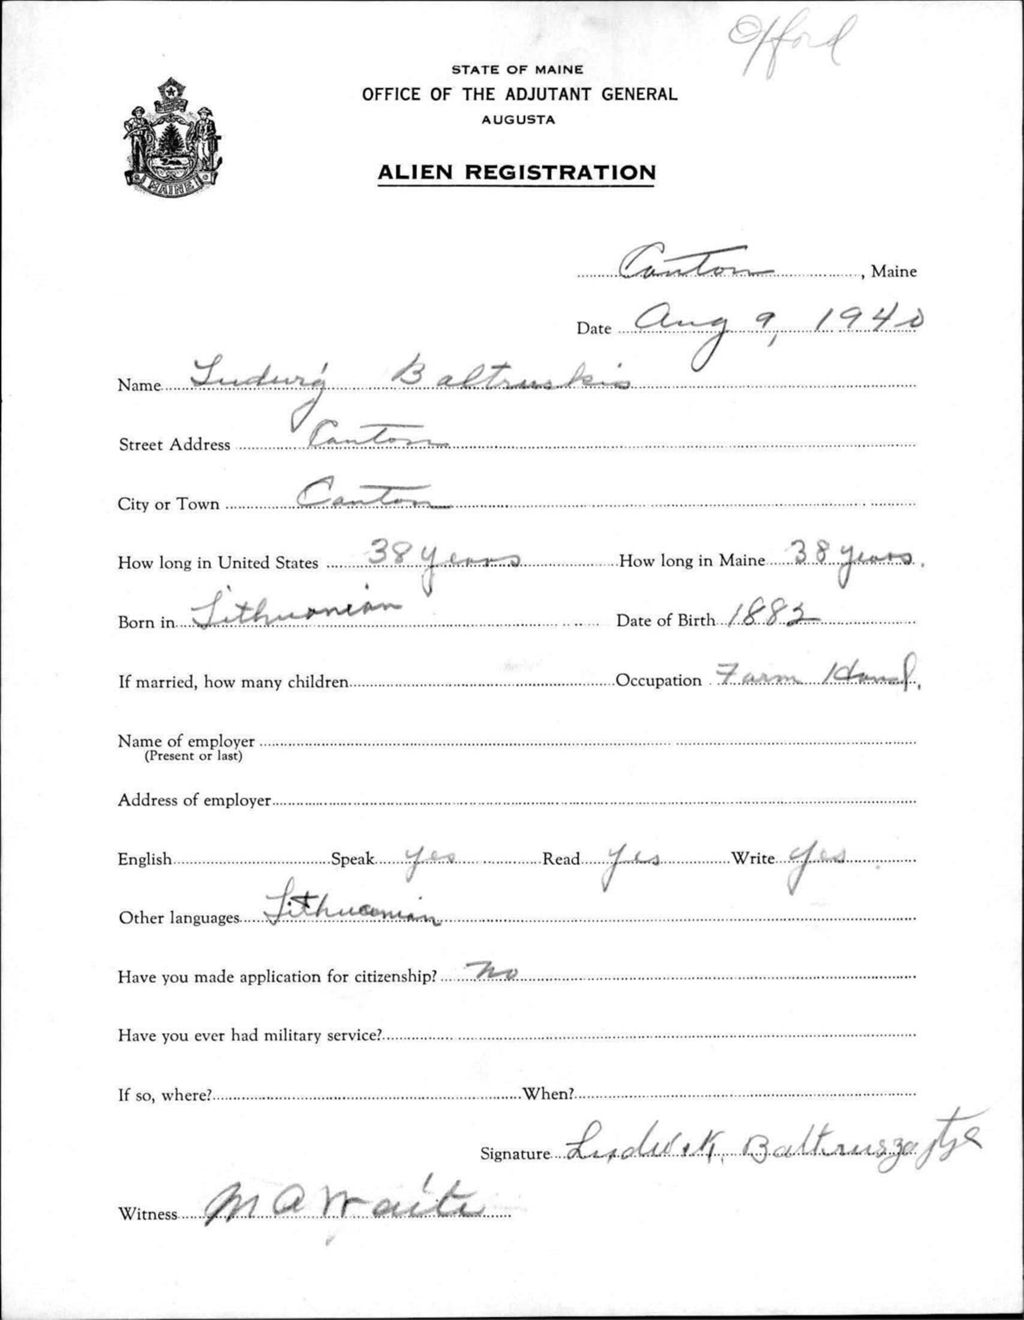 Oxford
STATE OF MAINE
OFFICE OF THE ADJUTANT GENERAL
AUGUSTA
ALIEN REGISTRATION
MAINE
Canton, Maine
Date Aug 9, 1940
Name Ludwig Baltruskis
Street Address Canton
City or Town Canton
How long in United States 38 years How long in Maine 38 years.
Born in Lithuanian Date of Birth 1882
If married, how many children Occupation Farm Hand.
Name of employer
(Present or last)
Address of employer
English Speak yes Read yes Write yes
Other languages Lithuanian
Have you made application for citizenship? No
Have you ever had military service?
If so, where? When?
Signature Ludwik
Witness M A Waite